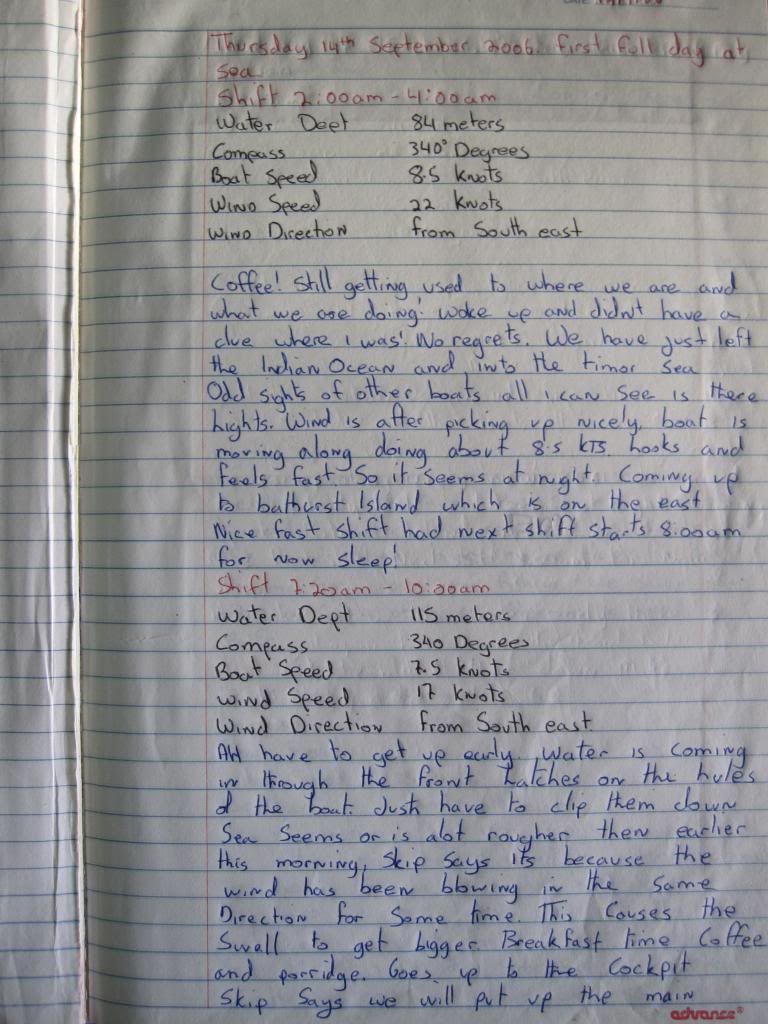 Thursday, 14th September 2006. first full day at
Sea
Shift 2:00am - 4:00am
Water Dept 84 meters
Compass 340° Degrees
Boat Speed 8.5 Knots
Wind Speed 22 Knots
Wind Direction from South east
Coffee! Still getting used to where we are and
what we are doing! woke up and didn't have a
clue where I was! No regrets. We have just left
the Indian Ocean and into the timor Sea
Odd sights of other boats all i can See is there
Lights. Wind is after picking up nicely, boat is
moving along doing about 8.5 KTS. hooks and
feels fast. So it seems at night. Coming up
to bathurst Island which is on the east
Nice fast shift had next shift starts 8:00am
for now sleep!
Shift 7:20am - 10:00am
Water Dept 115 meters
Compass 340 Degrees
Boat Speed 7.5 Knots
Wind Speed 17 Knots
Wind Direction from South east.
have to get up early. Water is coming
in through the front hatches on the hules
of the boat. Just have to clip them down
Sea Seems or is alot rougher then earlier
this morning, Skip Says its because the
wind has been blowing in the Same
Direction for Some time. This Causes the
Swall to get bigger. Breakfast time Coffee
and porridge. Goes up to the Cockpit
Skip Says we will put up the main
advance®